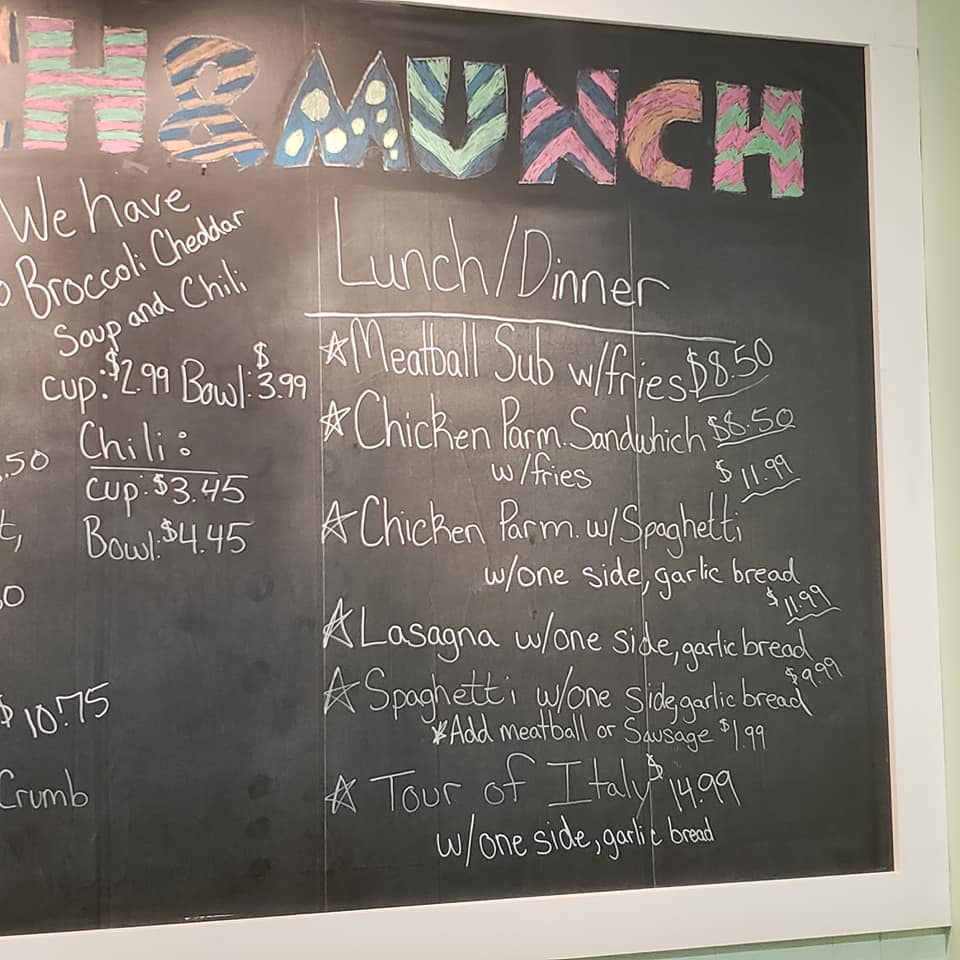 H & MUNCH
We have
Broccoli Cheddar
Soup and Chili
cup: $2.99 Bowl: $3.99
Chili:
cup: $3.45
Bowl: $4.45
.50
$10.75
Crumb
Lunch/Dinner
☆Meatball Sub w/fries $8.50
☆Chicken Parm. Sandwhich $8.50
w/fries
$11.99
☆Chicken Parm. w/Spaghetti
w/one side, garlic bread
$11.99
☆Lasagna w/one side, garlic bread
$9.99
☆Spaghetti w/one side, garlic bread
*Add meatball or Sausage $1.99
☆ Tour of Italy $14.99
w/one side, garlic bread